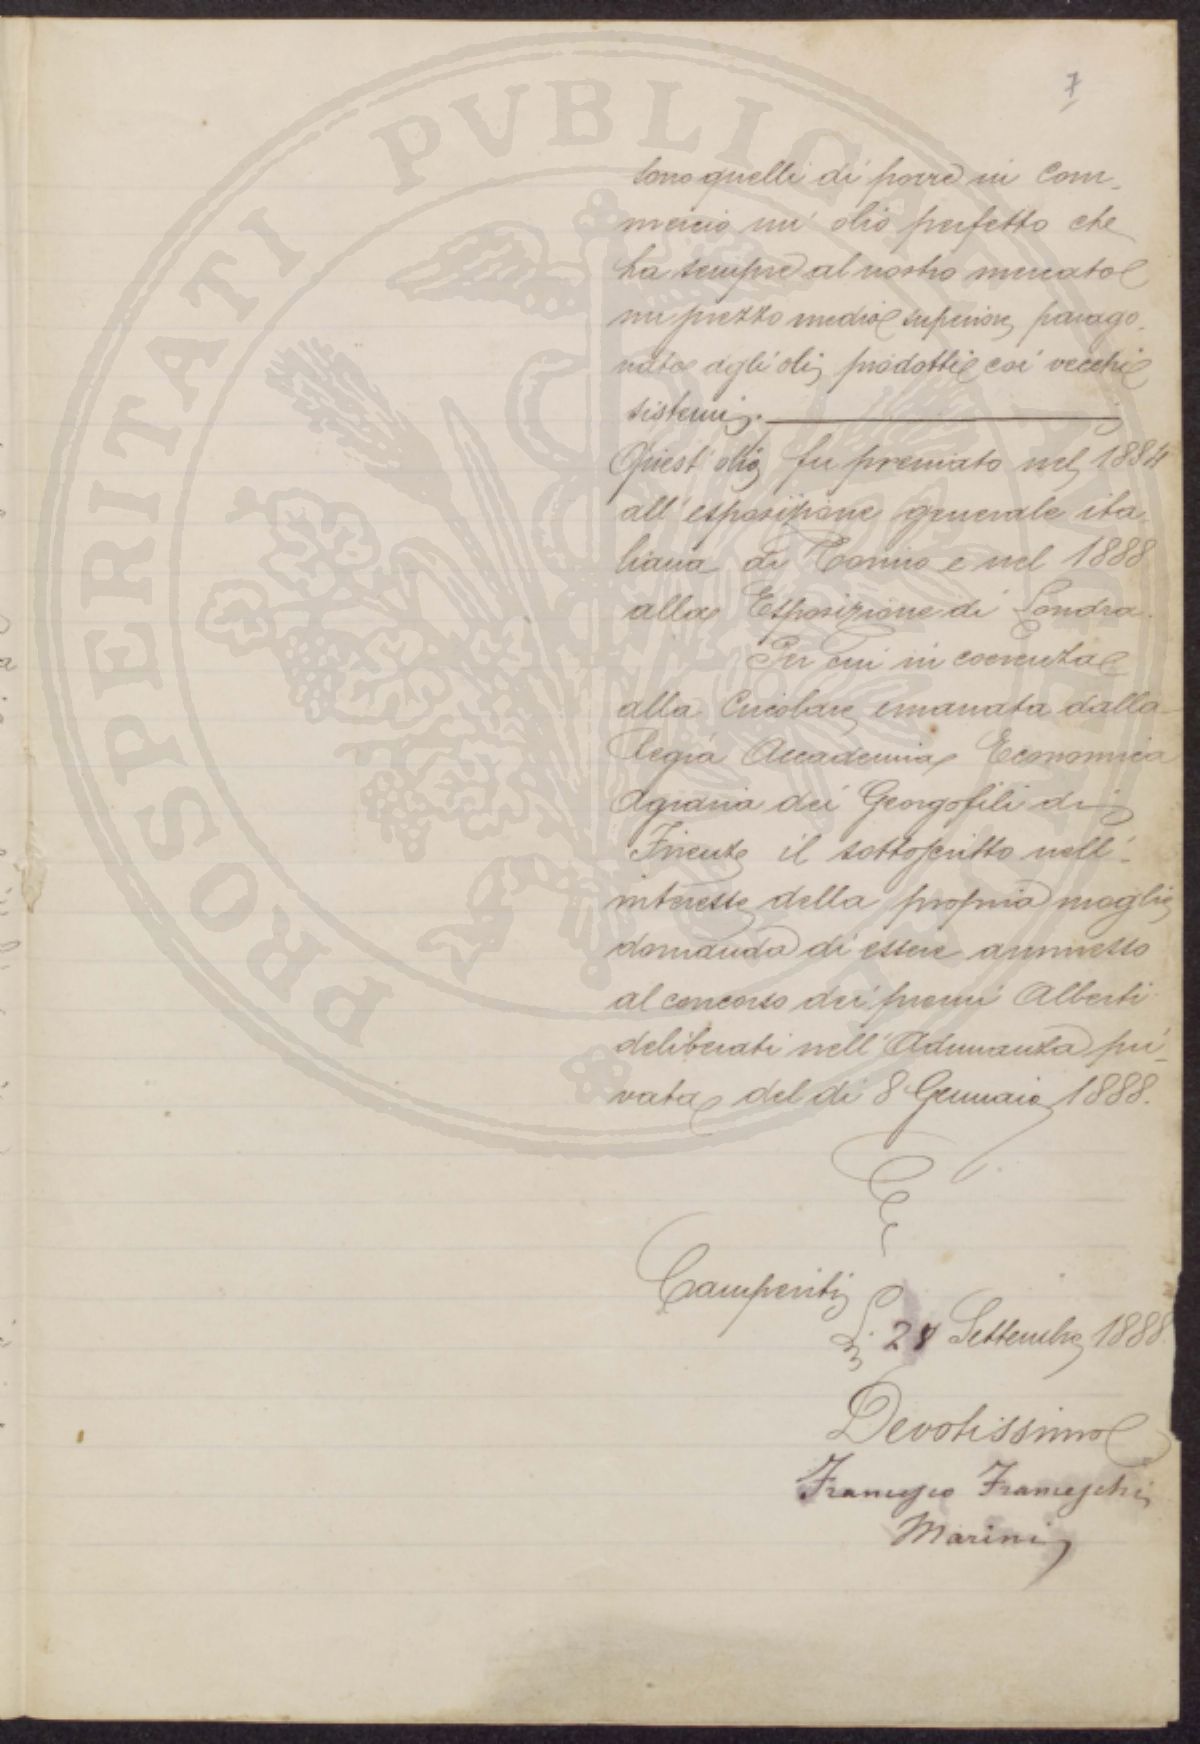 7
sono quelli di porre in com-
mercio un' olio perfetto che
ha sempre al nostro mercato
un prezzo medio superiore parago-
nato agli oli prodotti coi vecchi
sistemi.
Quest' olio fu premiato nel 1884
all' esposizione generale ita-
liana di Torino e nel 1888
alla Esposizione di Londra.
Per cui in coerenza
alla Circolare emanata dalla
Regia Accademia Economica
Agraria dei Georgofili di
Firenze il sottoscritto nell'-
interesse della propria moglie
domanda di essere ammesso
al concorso dei premi Alberti
deliberati nell' Adunanza pri-
vata del di 8 Gennaio 1888.
Camperiti
Li 28 Settembre 1888
Devotissimo
Francesco Franceschi
Marini
PROSPERITATI PVBLICAE